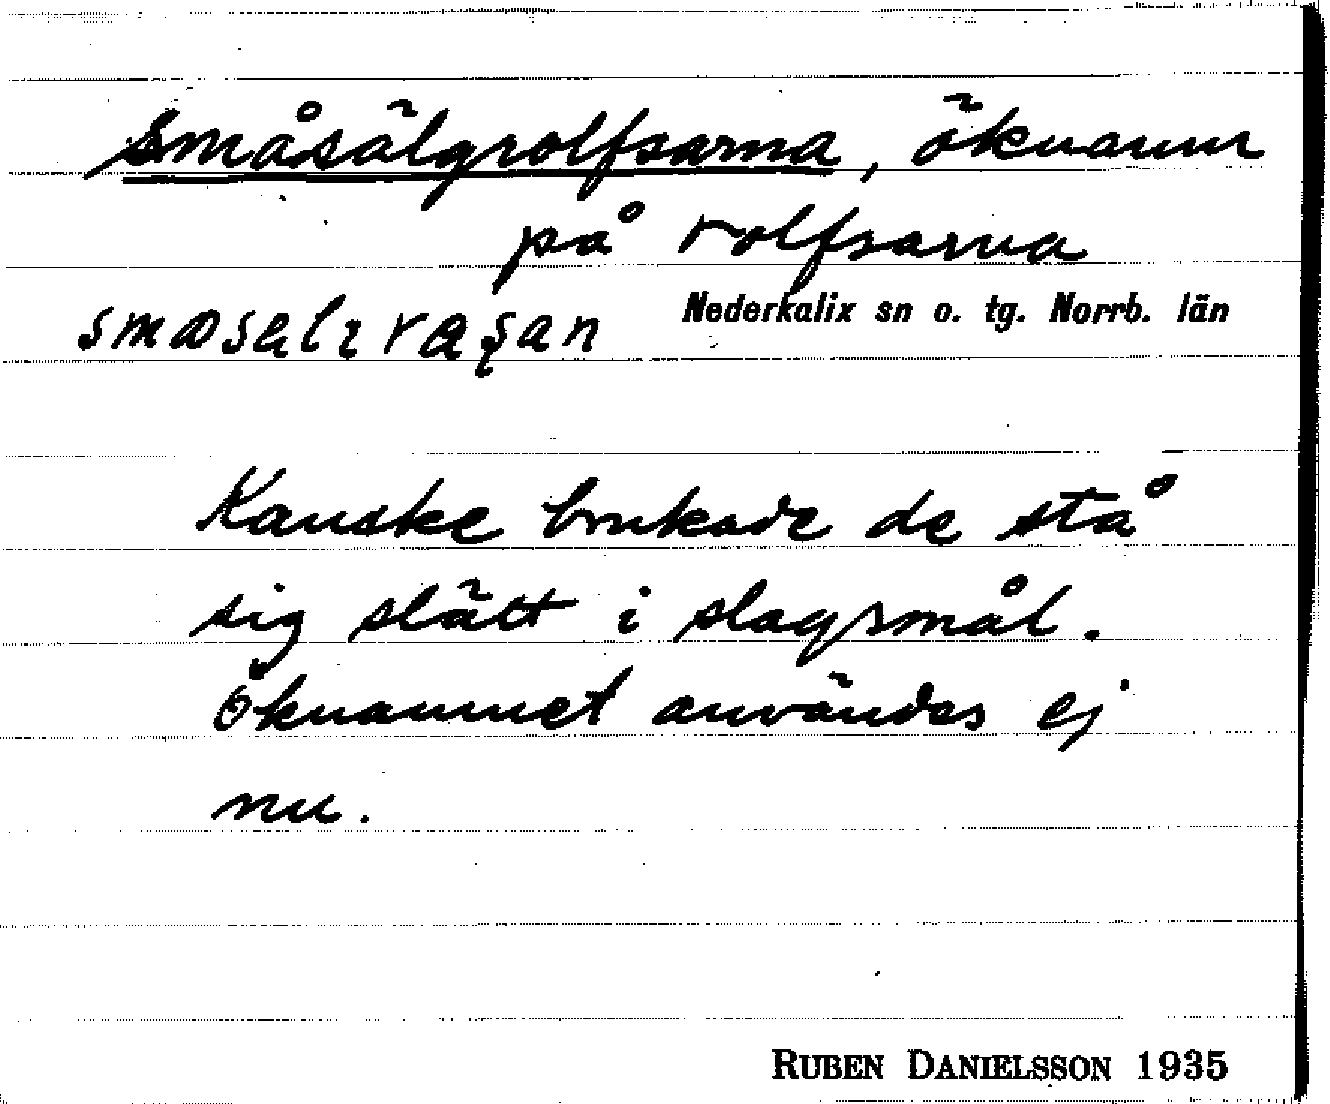 småsälgrolfsarna, öknamn
på rolfsarna
Nederkalix sn o. tg. Norrb. län
Kanske brukade de stå
sig slätt i slagsmål.
Öknamnet användes ej
nu.
RUBEN DANIELSSON 1935